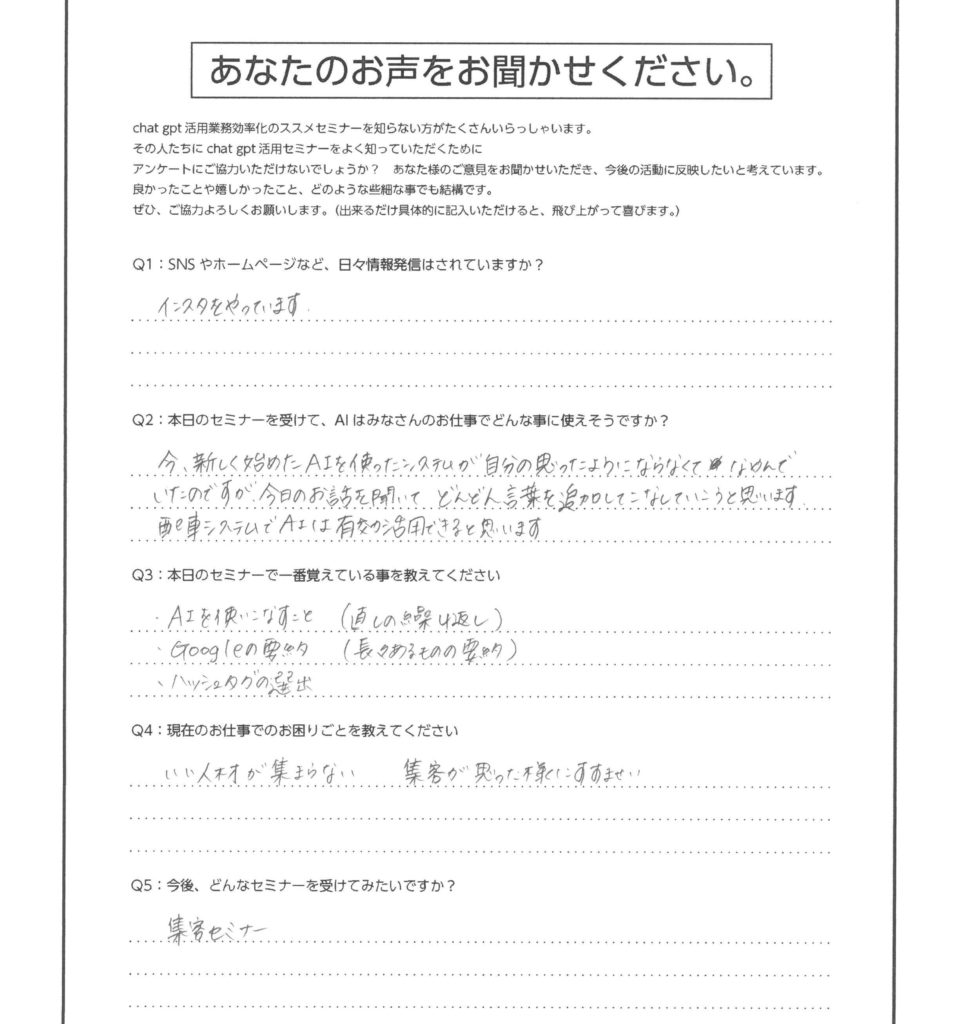 あなたのお声をお聞かせください。
chat gpt 活用業務効率化のススメセミナーを知らない方がたくさんいらっしゃいます。
その人たちに chat gpt 活用セミナーをよく知っていただくために
アンケートにご協力いただけないでしょうか？　あなた様のご意見をお聞かせいただき、今後の活動に反映したいと考えています。
良かったことや嬉しかったこと、どのような些細な事でも結構です。
ぜひ、ご協力よろしくお願いします。（出来るだけ具体的に記入いただけると、飛び上がって喜びます。）
Q1：SNS やホームページなど、日々情報発信はされていますか？
インスタをやっています.
Q2：本日のセミナーを受けて、AI はみなさんのお仕事でどんな事に使えそうですか？
今、新しく始めたAIを使ったシステムが自分の思ったようにならなくて なやんで
いたのですが、今日のお話を聞いて どんどん言葉を追加してこなしていこうと思います.
配車システムでAIは有効活用できると思います
Q3：本日のセミナーで一番覚えている事を教えてください
・AIを使いこなすこと （直しの繰り返し）
・Googleの要約 （長々あるものの要約）
・ハッシュタグの選出
Q4：現在のお仕事でのお困りごとを教えてください
いい人材が集まらない　集客が思った様にすすまない
Q5：今後、どんなセミナーを受けてみたいですか？
集客セミナー